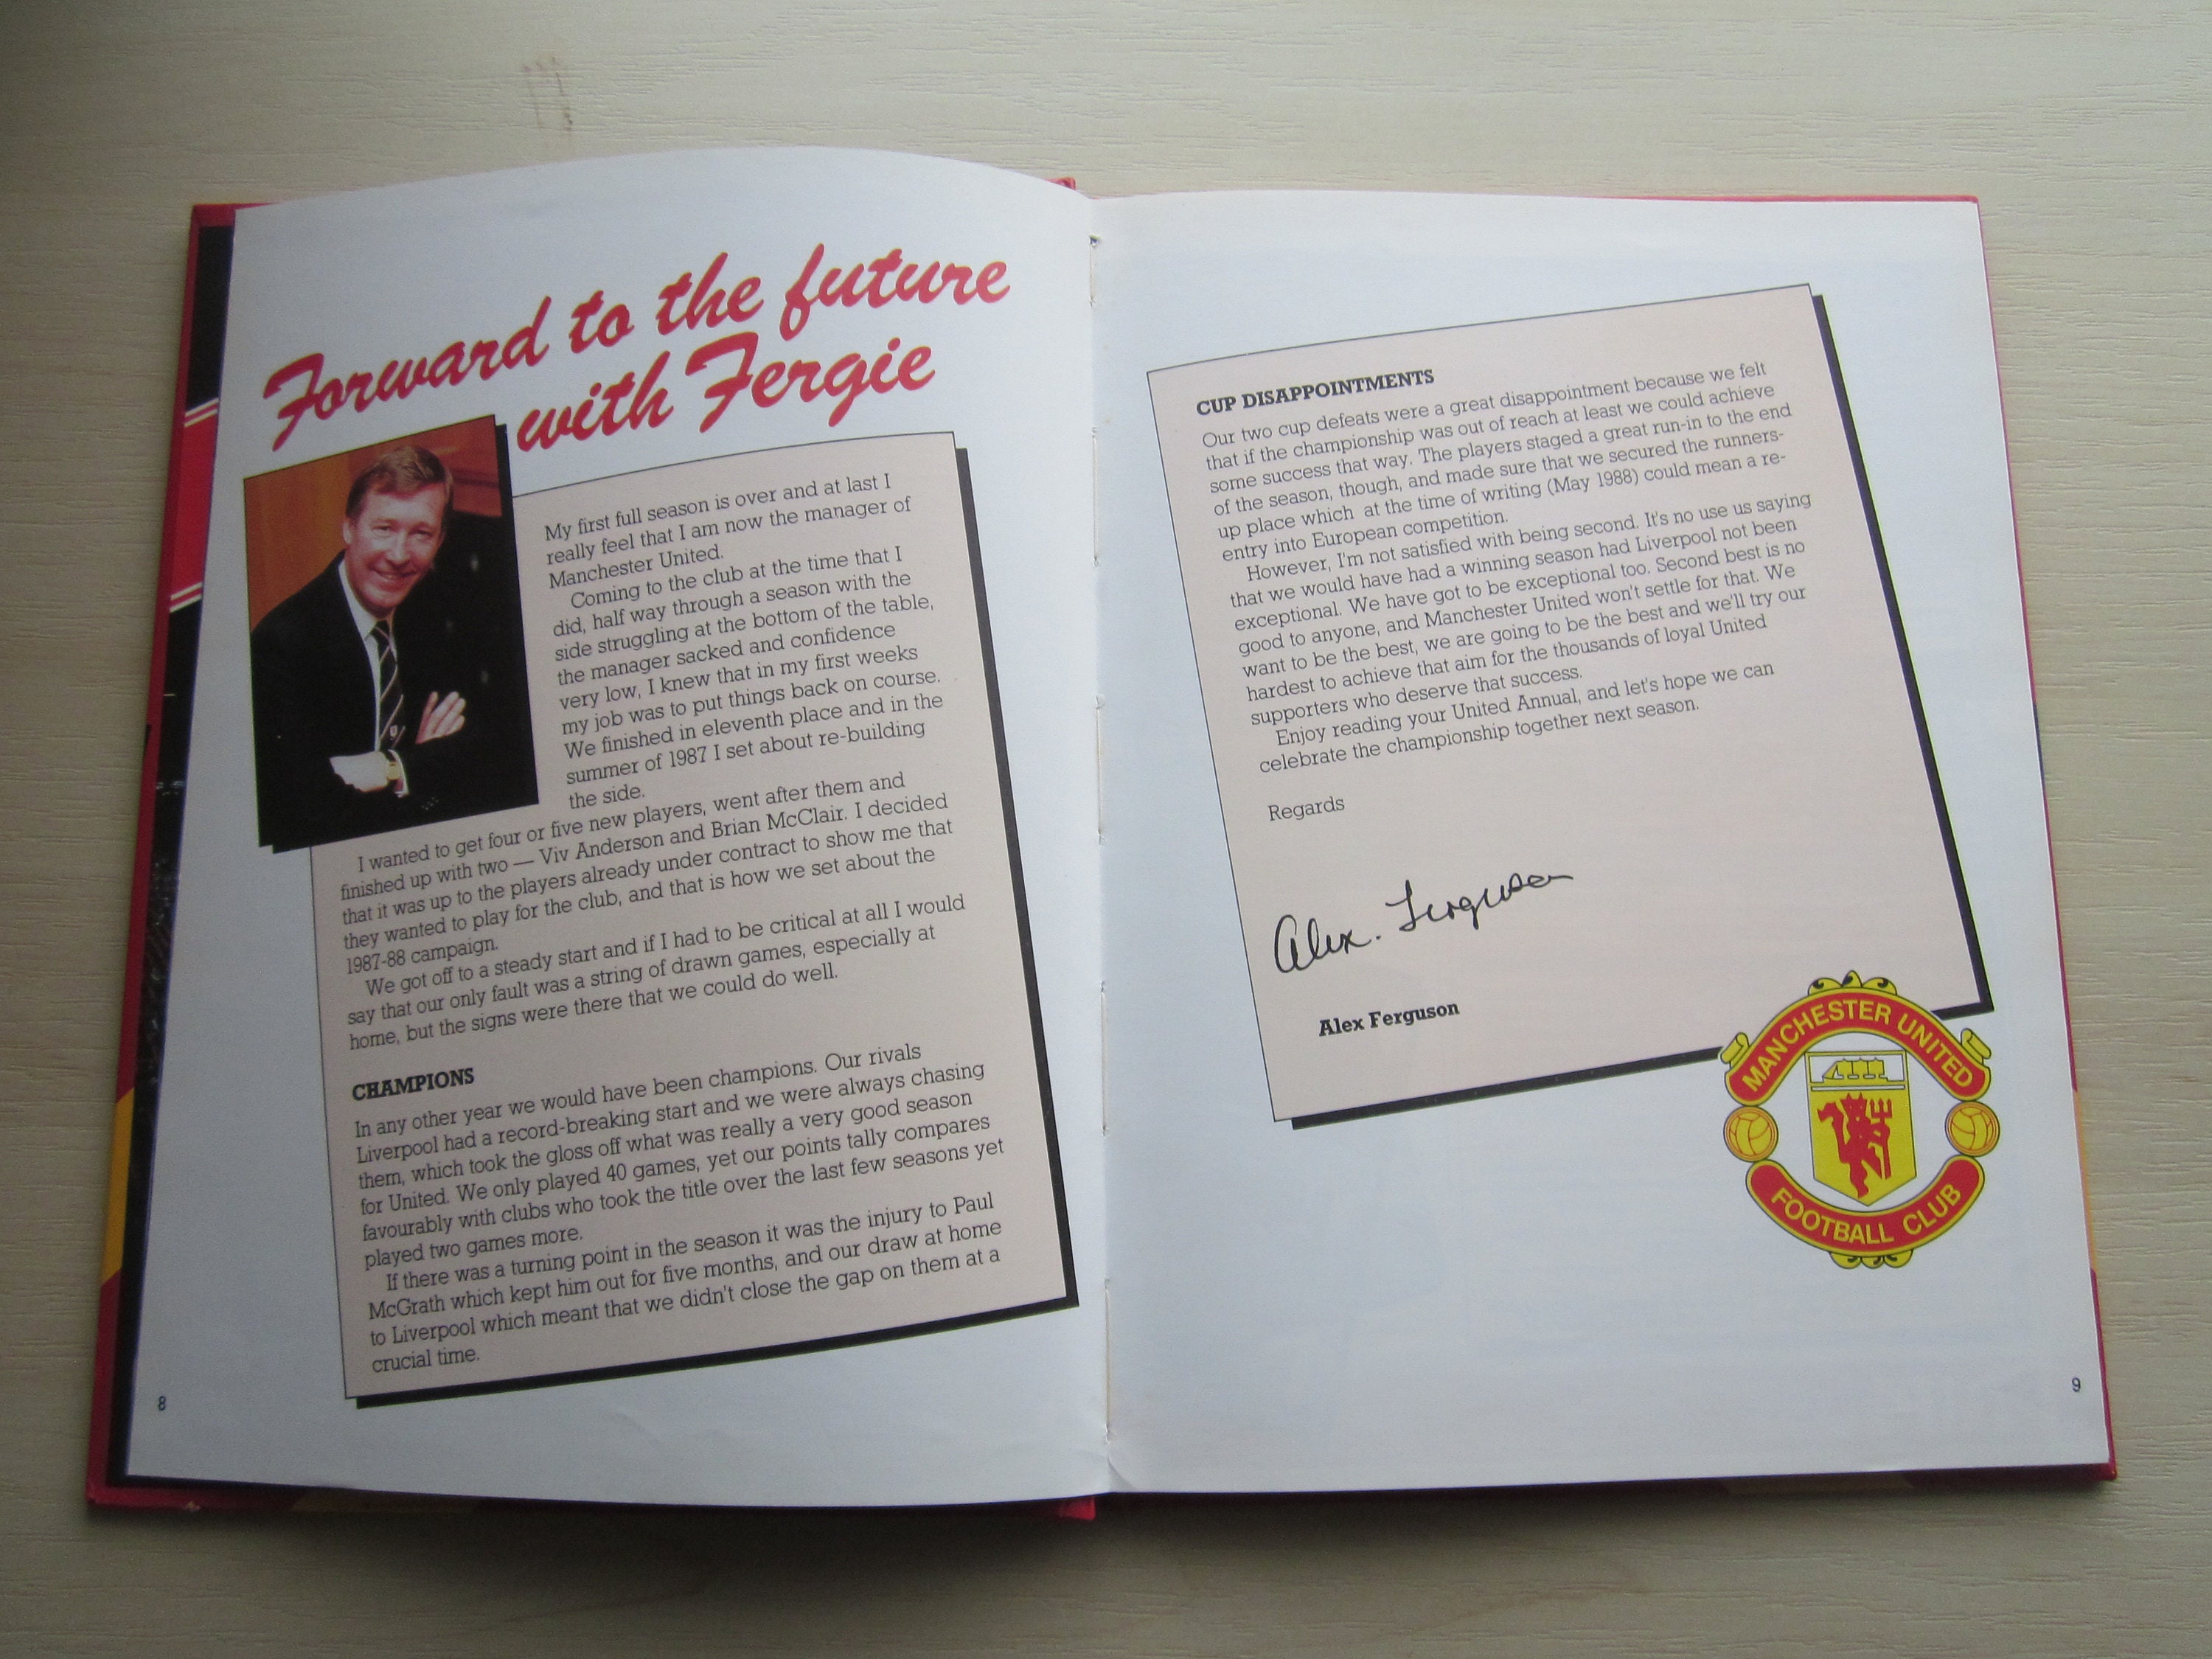 Forward to the future
with Fergie
My first full season is over and at last I
really feel that I am now the manager of
Manchester United.
Coming to the club at the time that I
did, half way through a season with the
side struggling at the bottom of the table,
the manager sacked and confidence
very low, I knew that in my first weeks
my job was to put things back on course.
We finished in eleventh place and in the
summer of 1987 I set about re-building
the side.
I wanted to get four or five new players, went after them and
finished up with two — Viv Anderson and Brian McClair. I decided
that it was up to the players already under contract to show me that
they wanted to play for the club, and that is how we set about the
1987-88 campaign.
We got off to a steady start and if I had to be critical at all I would
say that our only fault was a string of drawn games, especially at
home, but the signs were there that we could do well.
CHAMPIONS
In any other year we would have been champions. Our rivals
Liverpool had a record-breaking start and we were always chasing
them, which took the gloss off what was really a very good season
for United. We only played 40 games, yet our points tally compares
favourably with clubs who took the title over the last few seasons yet
played two games more.
If there was a turning point in the season it was the injury to Paul
McGrath which kept him out for five months, and our draw at home
to Liverpool which meant that we didn't close the gap on them at a
crucial time.
8
CUP DISAPPOINTMENTS
Our two cup defeats were a great disappointment because we felt
that if the championship was out of reach at least we could achieve
some success that way. The players staged a great run-in to the end
of the season, though, and made sure that we secured the runners-
up place which at the time of writing (May 1988) could mean a re-
entry into European competition.
However, I'm not satisfied with being second. It's no use us saying
that we would have had a winning season had Liverpool not been
exceptional. We have got to be exceptional too. Second best is no
good to anyone, and Manchester United won't settle for that. We
want to be the best, we are going to be the best and we'll try our
hardest to achieve that aim for the thousands of loyal United
supporters who deserve that success.
Enjoy reading your United Annual, and let's hope we can
celebrate the championship together next season.
Regards
Alex. Ferguson
Alex Ferguson
MANCHESTER UNITED
FOOTBALL CLUB
9